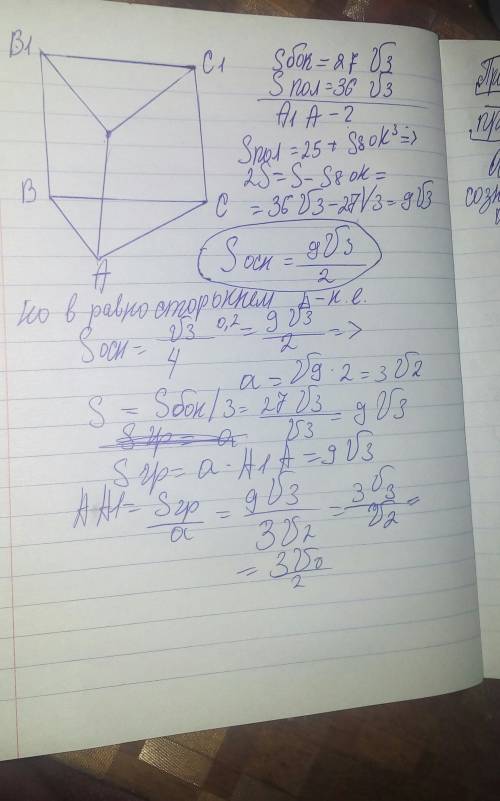 B1
C1
B
C
A
Sбок = 27 √3
Sпол = 36 √3
A1 A - ?
Sпол = 2S + Sбок³ =>
2S = S - Sбок =
= 36√3 - 27√3 = 9√3
Sосн = 9√3 / 2
но в равносторыннем ∆-н.е.
Sосн = √3 / 4 a,2 = 9√3 / 2 =>
a = √9 · 2 = 3√2
S = Sбок / 3 = 27√3 / √3 = 9√3
Sгр = a · A1 A = 9√3
AA1 = Sгр / a = 9√3 / 3√2 = 3√3 / √2 =
= 3√6 / 2
При
пр
созн